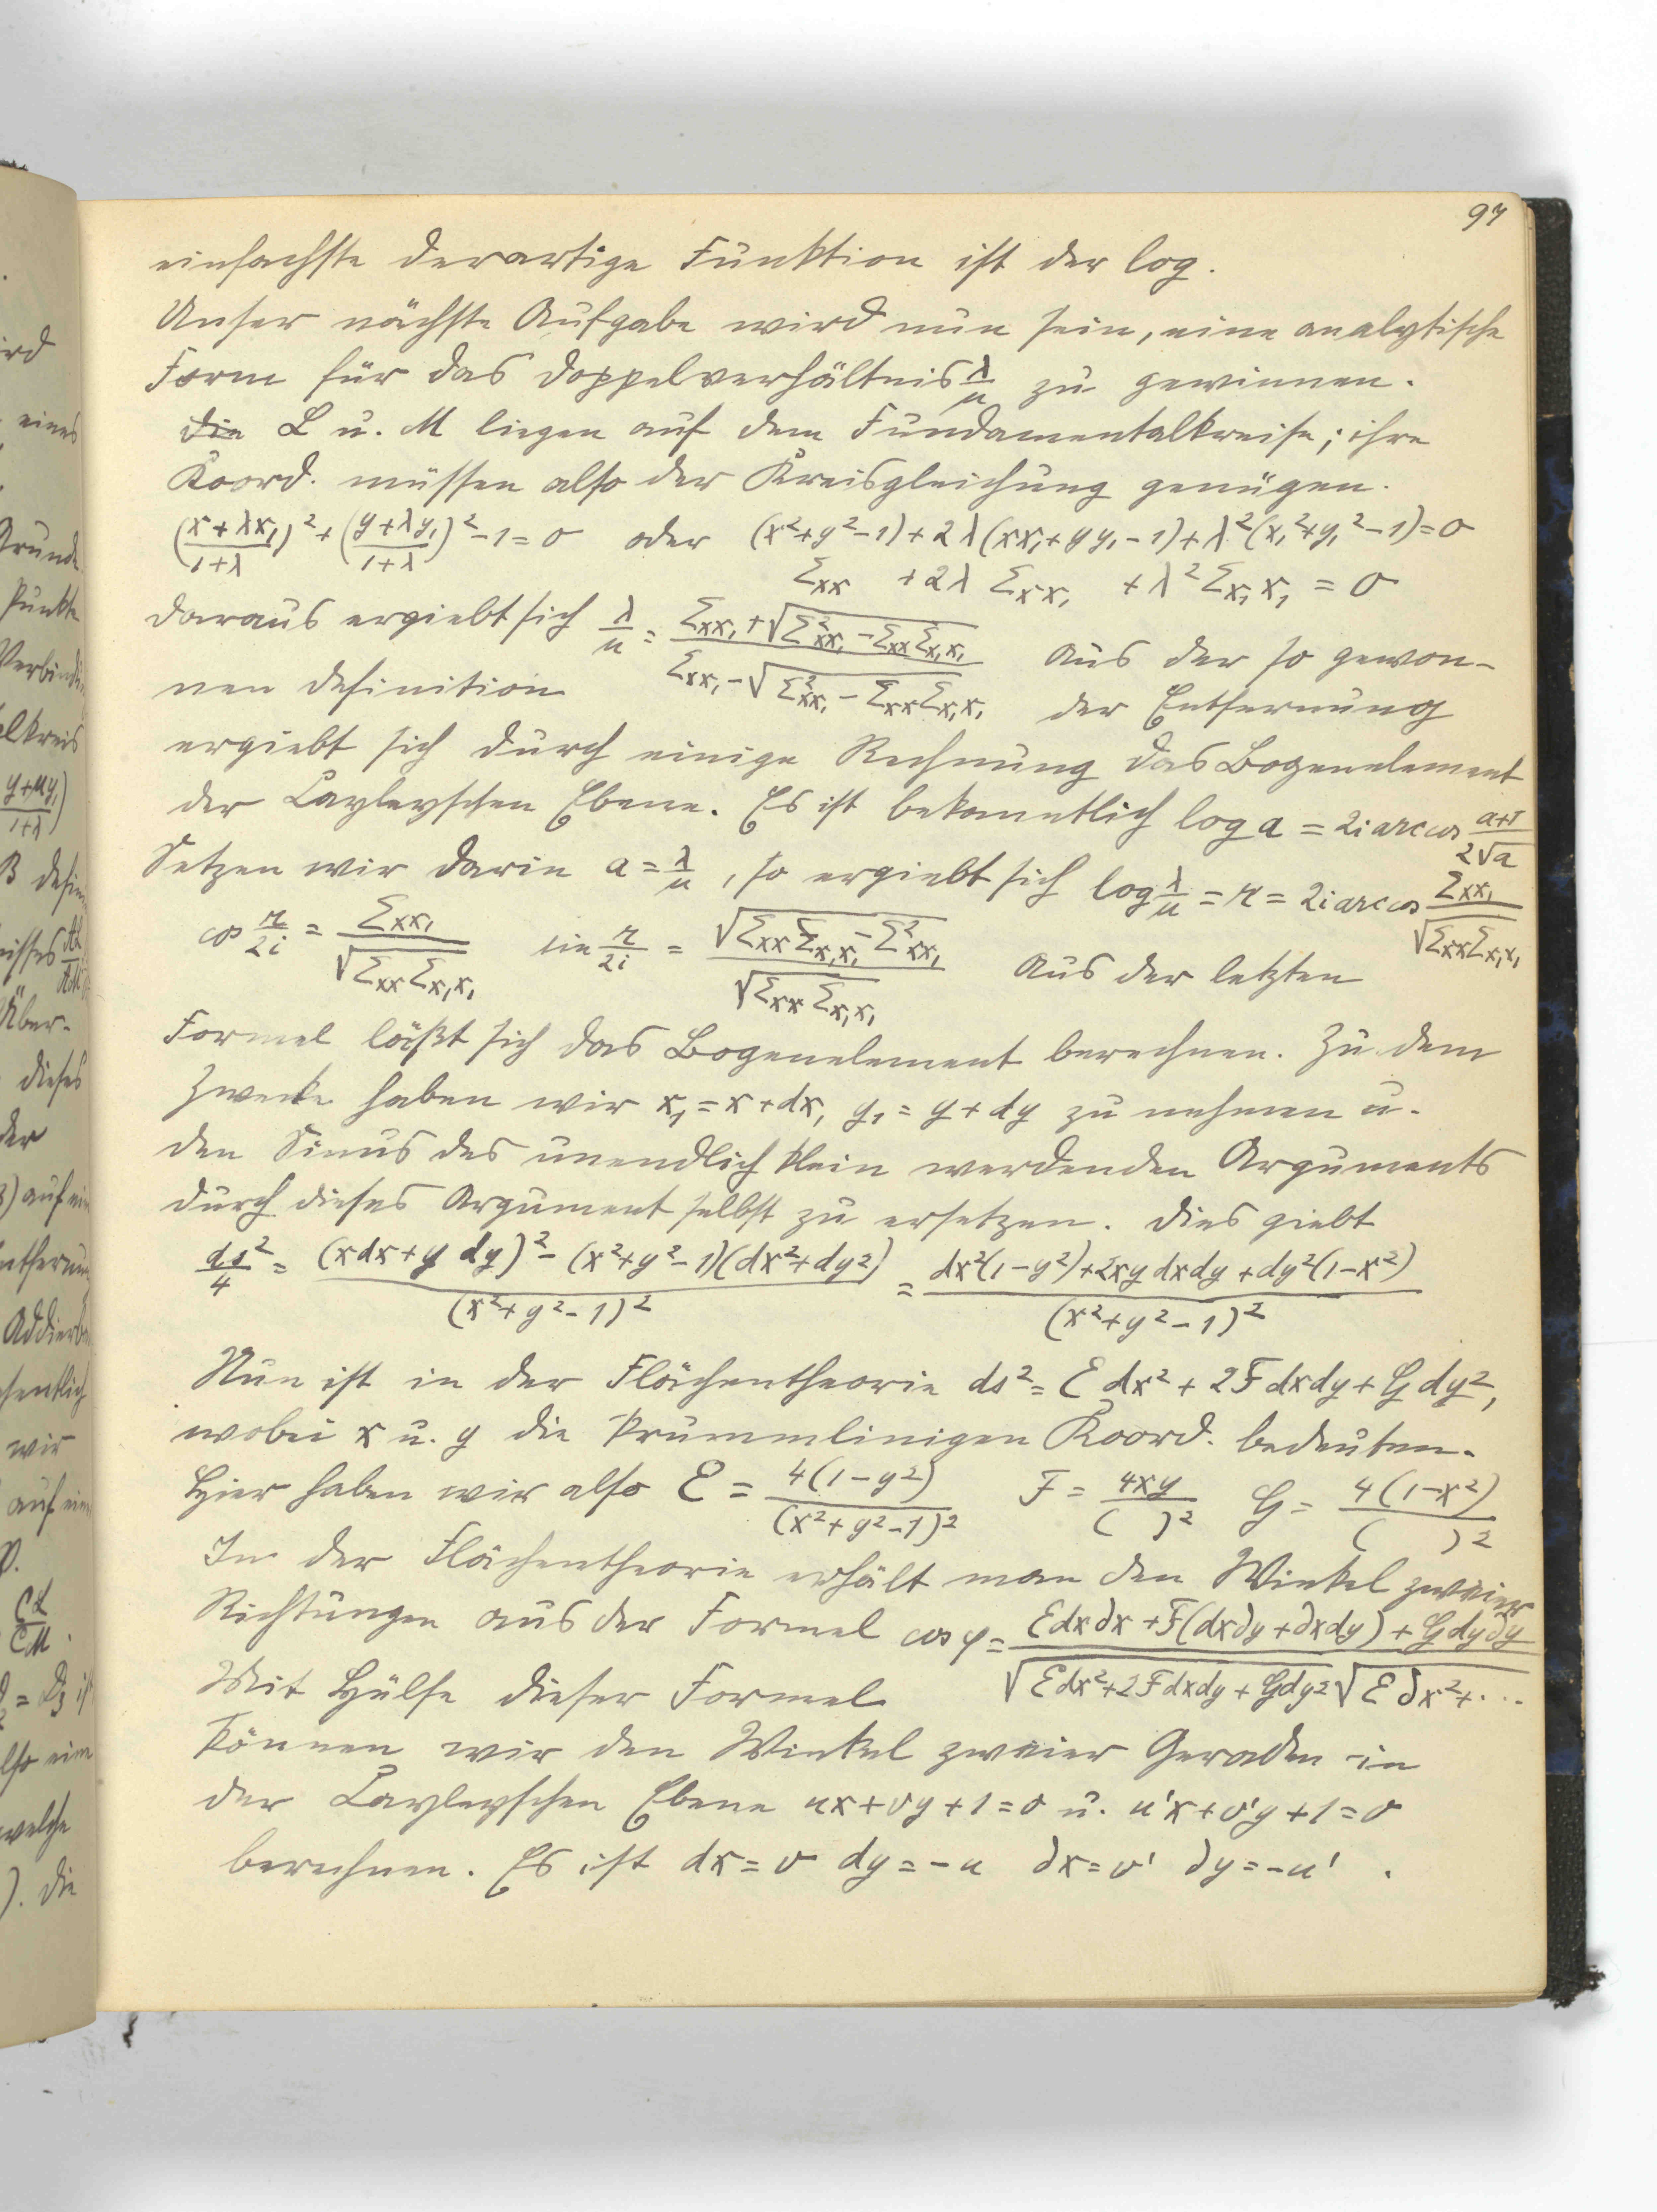 97
einfachste derartige Funktion ist der log.
Unser nächste Aufgabe wird nun sein, eine analytische
Form für das Doppelverhältnis λ/μ zu gewinnen.
Die L u. M liegen auf dem Fundamentalkreise; ihre
Koord. müssen also der Kreisgleichung genügen.
((x+λx₁)/(1+λ))² + ((y+λy₁)/(1+λ))² - 1 = 0 oder (x²+y²-1)+2λ(xx₁+yy₁-1)+λ²(x₁²+y₁²-1)=0
Σxx +2λ Σxx₁ +λ²Σx₁x₁ = 0
Daraus ergiebt sich λ/μ = (Σxx₁+√(Σ²xx₁-ΣxxΣx₁x₁))/(Σxx₁-√(Σ²xx₁-ΣxxΣx₁x₁)) Aus der so gewon-
nen Definition der Entfernung
ergiebt sich durch einige Rechnung das Bogenelement
der Cayleyschen Ebene. Es ist bekanntlich log a = 2i arc cos (a+1)/(2√a)
Setzen wir darin a = λ/μ, so ergiebt sich log λ/μ = r = 2i arc cos Σxx₁/√(ΣxxΣx₁x₁)
cos r/2i = Σxx₁/√(ΣxxΣx₁x₁) sin r/2i = √(ΣxxΣx₁x₁-Σ²xx₁)/√(ΣxxΣx₁x₁) Aus der letzten
Formel läßt sich das Bogenelement berechnen. Zu dem
Zwecke haben wir x₁=x+dx, y₁=y+dy zu nehmen u.
den Sinus des unendlich klein werdenden Arguments
durch dieses Argument selbst zu ersetzen. Dies giebt
ds²/4 = ((xdx+y dy)²-(x²+y²-1)(dx²+dy²))/(x²+y²-1)² = (dx²(1-y²)+2xy dxdy+dy²(1-x²))/(x²+y²-1)²
Nun ist in der Flächentheorie ds² = E dx² + 2F dxdy + G dy²,
wobei x u. y die krummlinigen Koord. bedeuten.
Hier haben wir also E = 4(1-y²)/(x²+y²-1)² F = 4xy/( )² G = 4(1-x²)/( )²
In der Flächentheorie erhält man den Winkel zweier
Richtungen aus der Formel cos φ = (E dx∂x+F(dx∂y+∂xdy)+G dy∂y)/(√(E dx²+2F dxdy+G dy²) √(E ∂x²+...
Mit Hülfe dieser Formel
können wir den Winkel zweier Geraden in
der Cayleyschen Ebene ux+vy+1=0 u. u'x+v'y+1=0
berechnen. Es ist dx=v dy=-u ∂x=v' ∂y=-u' .